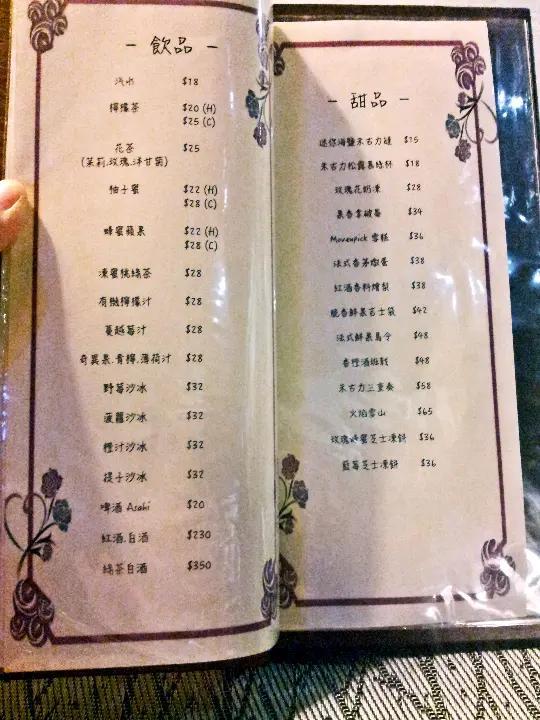 - 飲品 -
汽水 $18
檸檬茶 $20 (H)
$25 (C)
花茶 $25
(茉莉.玫瑰.洋甘菊)
柚子蜜 $22 (H)
$28 (C)
蜂蜜蘋果 $22 (H)
$28 (C)
凍蜜桃綠茶 $28
有機檸檬汁 $28
蔓越莓汁 $28
奇異果.青檸.薄荷汁 $28
野莓沙冰 $32
菠蘿沙冰 $32
橙汁沙冰 $32
提子沙冰 $32
啤酒 Asahi $20
紅酒.白酒 $230
綠茶白酒 $350
- 甜品 -
迷你海鹽朱古力撻 $15
朱古力松露暴綿杯 $18
玫瑰花奶凍 $28
果香拿破崙 $34
Movenpick 雪糕 $36
法式香茅燉蛋 $38
紅酒香料燴梨 $38
脆香鮮果吉士袋 $42
法式鮮果鳥令 $48
香橙酒班戟 $48
朱古力三重奏 $58
火焰雪山 $65
玫瑰蜂蜜芝士凍餅 $36
藍莓芝士凍餅 $36